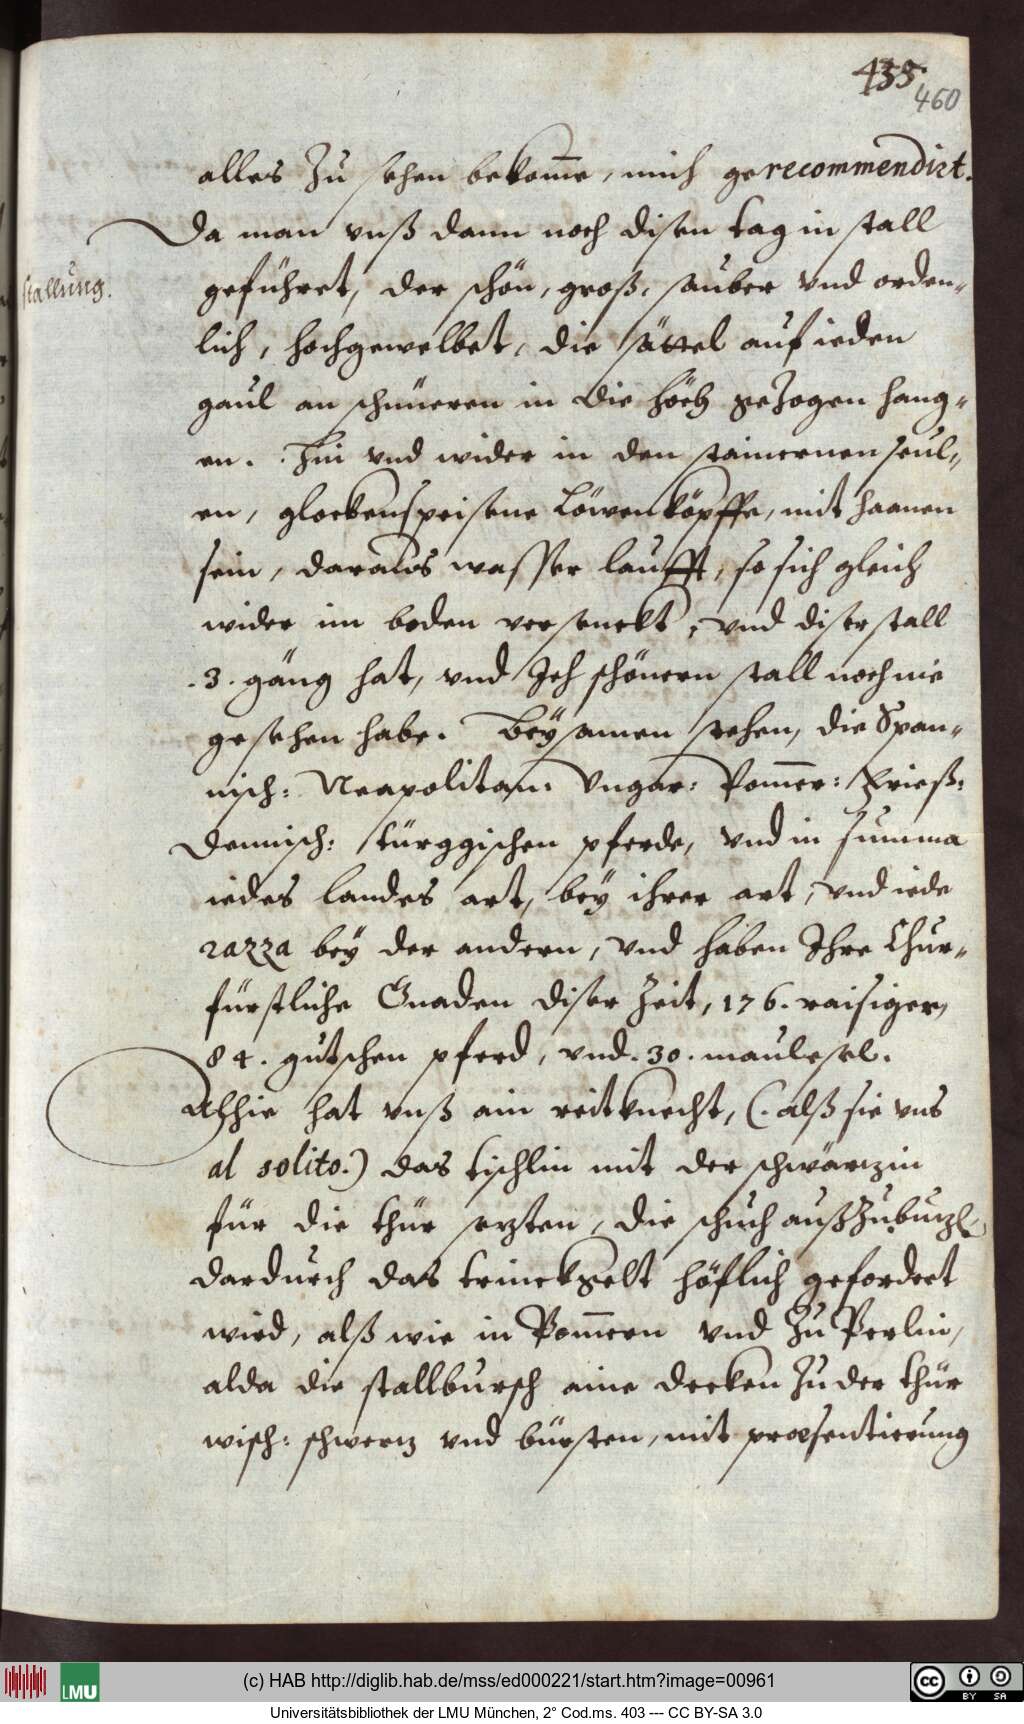 435
460
alles zu sehen bekom̄e, mich gerecommendirt.
Da man vnß dann noch disen tag in stall
stallung.
geführet, der schön, groß, sauber vnd orden=
lich, hochgewelbet, die sättel auf ieden
gaul an schnüeren in die höch gezogen hang=
en. Hin vnd wider in den stainernen seul=
en, glockenspeisene Löwenköpffe, mit haanen
sein, daraus wasser laufft, so sich gleich
wider im boden versenckt, vnd diser stall
.3. gäng hat, vnd Ich schönern stall noch nie
gesehen habe. Beysamen stehen, die Span=
nisch: Neapolitan: Vngar: Pom̄er: Frieß:
Dennisch: türggischen pferde, vnd in summa
iedes landes art, bey ihrer art, vnd iede
razza bey der andern, vnd haben Ihre Chur=
fürstliche Gnaden diser Zeit, 176. raisiger,
84. gutschen pferd, vnd .30. maulesel.
Alhie hat vnß ain reitknecht, (.alß sie vns
al solito.) das tischlin mit der schwärzin
für die thür sezten, die schuch außzubuzen,
dardurch das trinckgelt höflich gefordert
wird, alß wie in Pom̄ern vnd zu Perlin,
alda die stallbursch aine decken zu der thür
wisch: schwerz vnd bürsten, mit præsentierung
(c) HAB http://diglib.hab.de/mss/ed000221/start.htm?image=00961
LMU
cc BY SA
Universitätsbibliothek der LMU München, 2° Cod.ms. 403 --- CC BY-SA 3.0